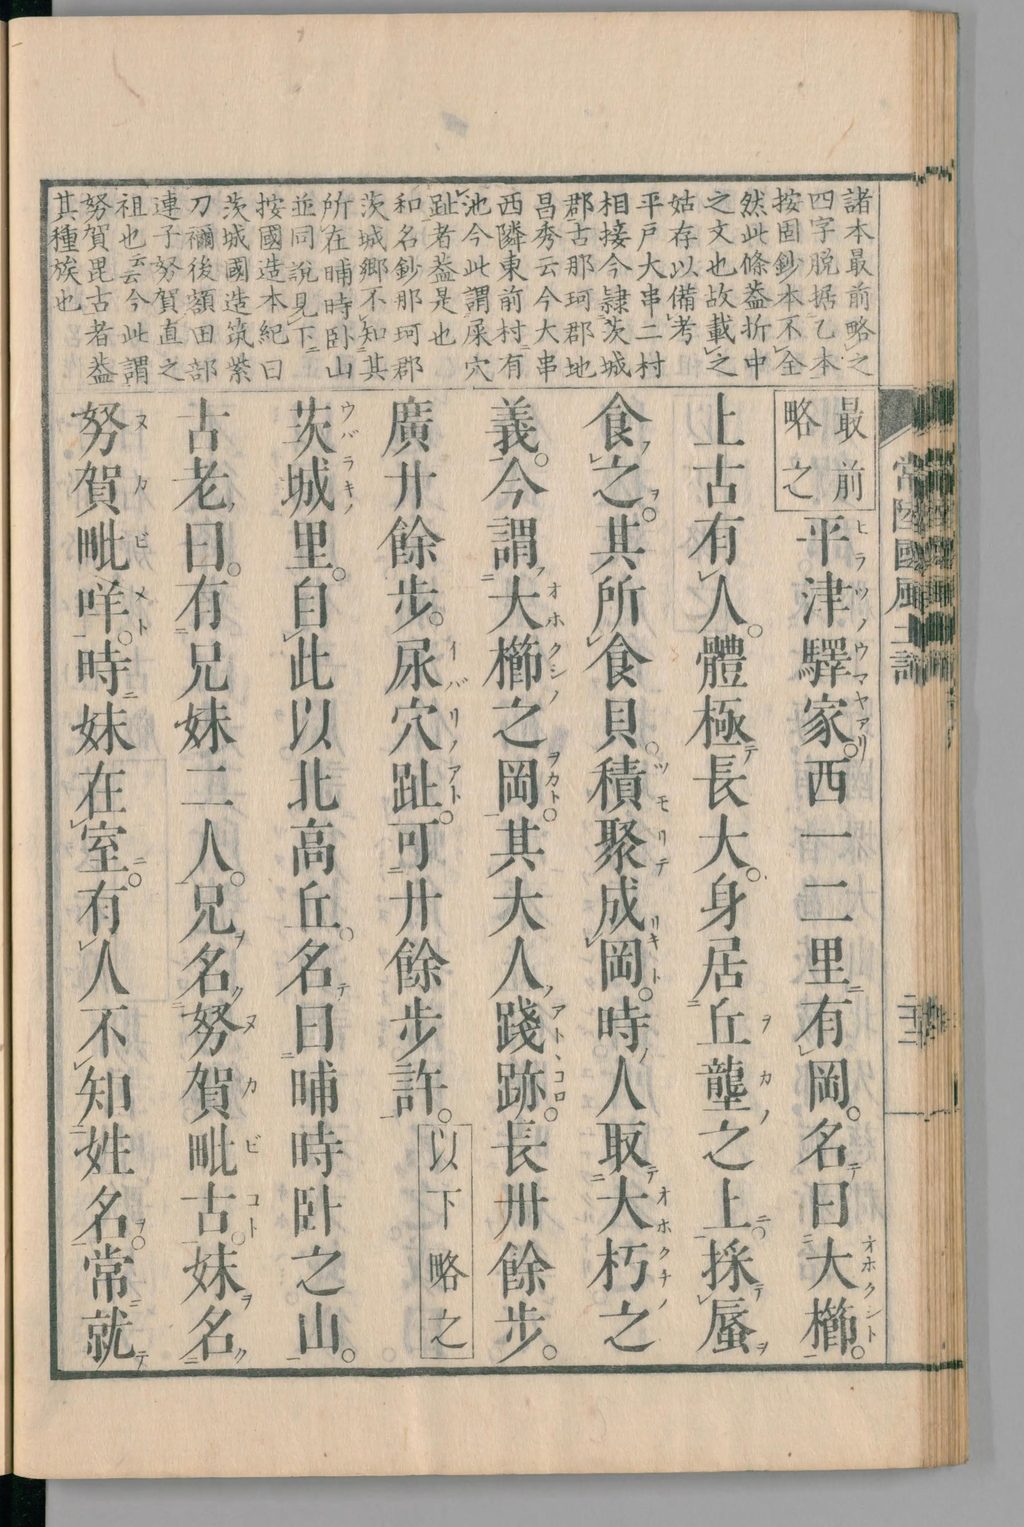 諸本最前略之
四字脱据乙本
按固鈔本不全
然此條葢折中
之文也故載之
姑存以備考
平戸大串二村
相接今隷茨城
郡古那珂郡地
昌秀云今大串
西隣東前村有
池今此謂屎穴
趾者葢是也
和名鈔那珂郡
茨城郷不知其
所在晡時卧山
並同説見下
按國造本紀曰
茨城國造筑紫
刀禰後額田部
連子努賀直之
祖也云云今此謂
努賀毘古者葢
其種族也
最前略之
平津驛家。西一二里有岡。名曰大櫛。
上古有人。體極長大。身居丘壟之上。採蜃
食之。其所食貝。積聚成岡。時人取大朽之
義。今謂大櫛之岡。其大人踐跡。長卅餘步。
廣廿餘步。尿穴趾。可廿餘步許。以下略之
茨城里。自此以北高丘。名曰晡時卧之山。
古老曰。有兄妹二人。兄名努賀毗古。妹名
努賀毗咩。時妹在室。有人不知姓名。常就
常陸國風土記